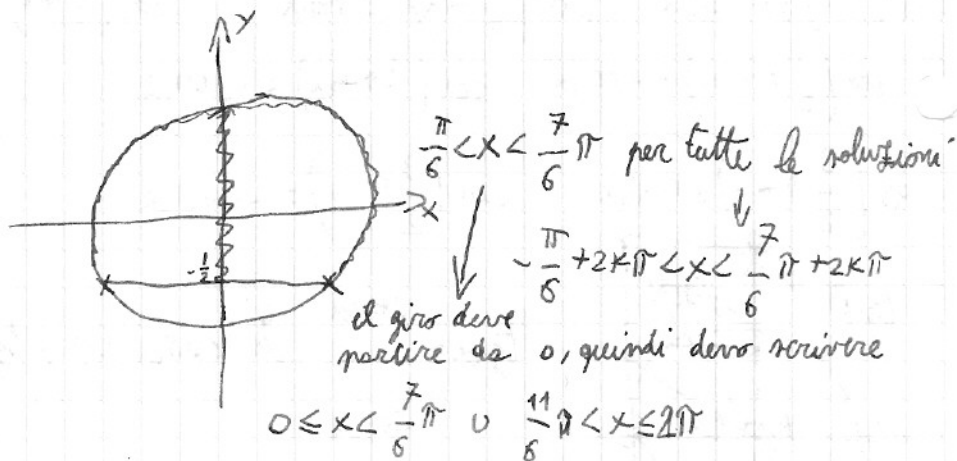 y
π/6 < x < 7/6 π per tutte le soluzioni
x
-1/2
-π/6 + 2kπ < x < 7/6 π + 2kπ
il giro deve
partire da 0, quindi devo scrivere
0 ≤ x < 7/6 π ∪ 11/6 π < x ≤ 2π